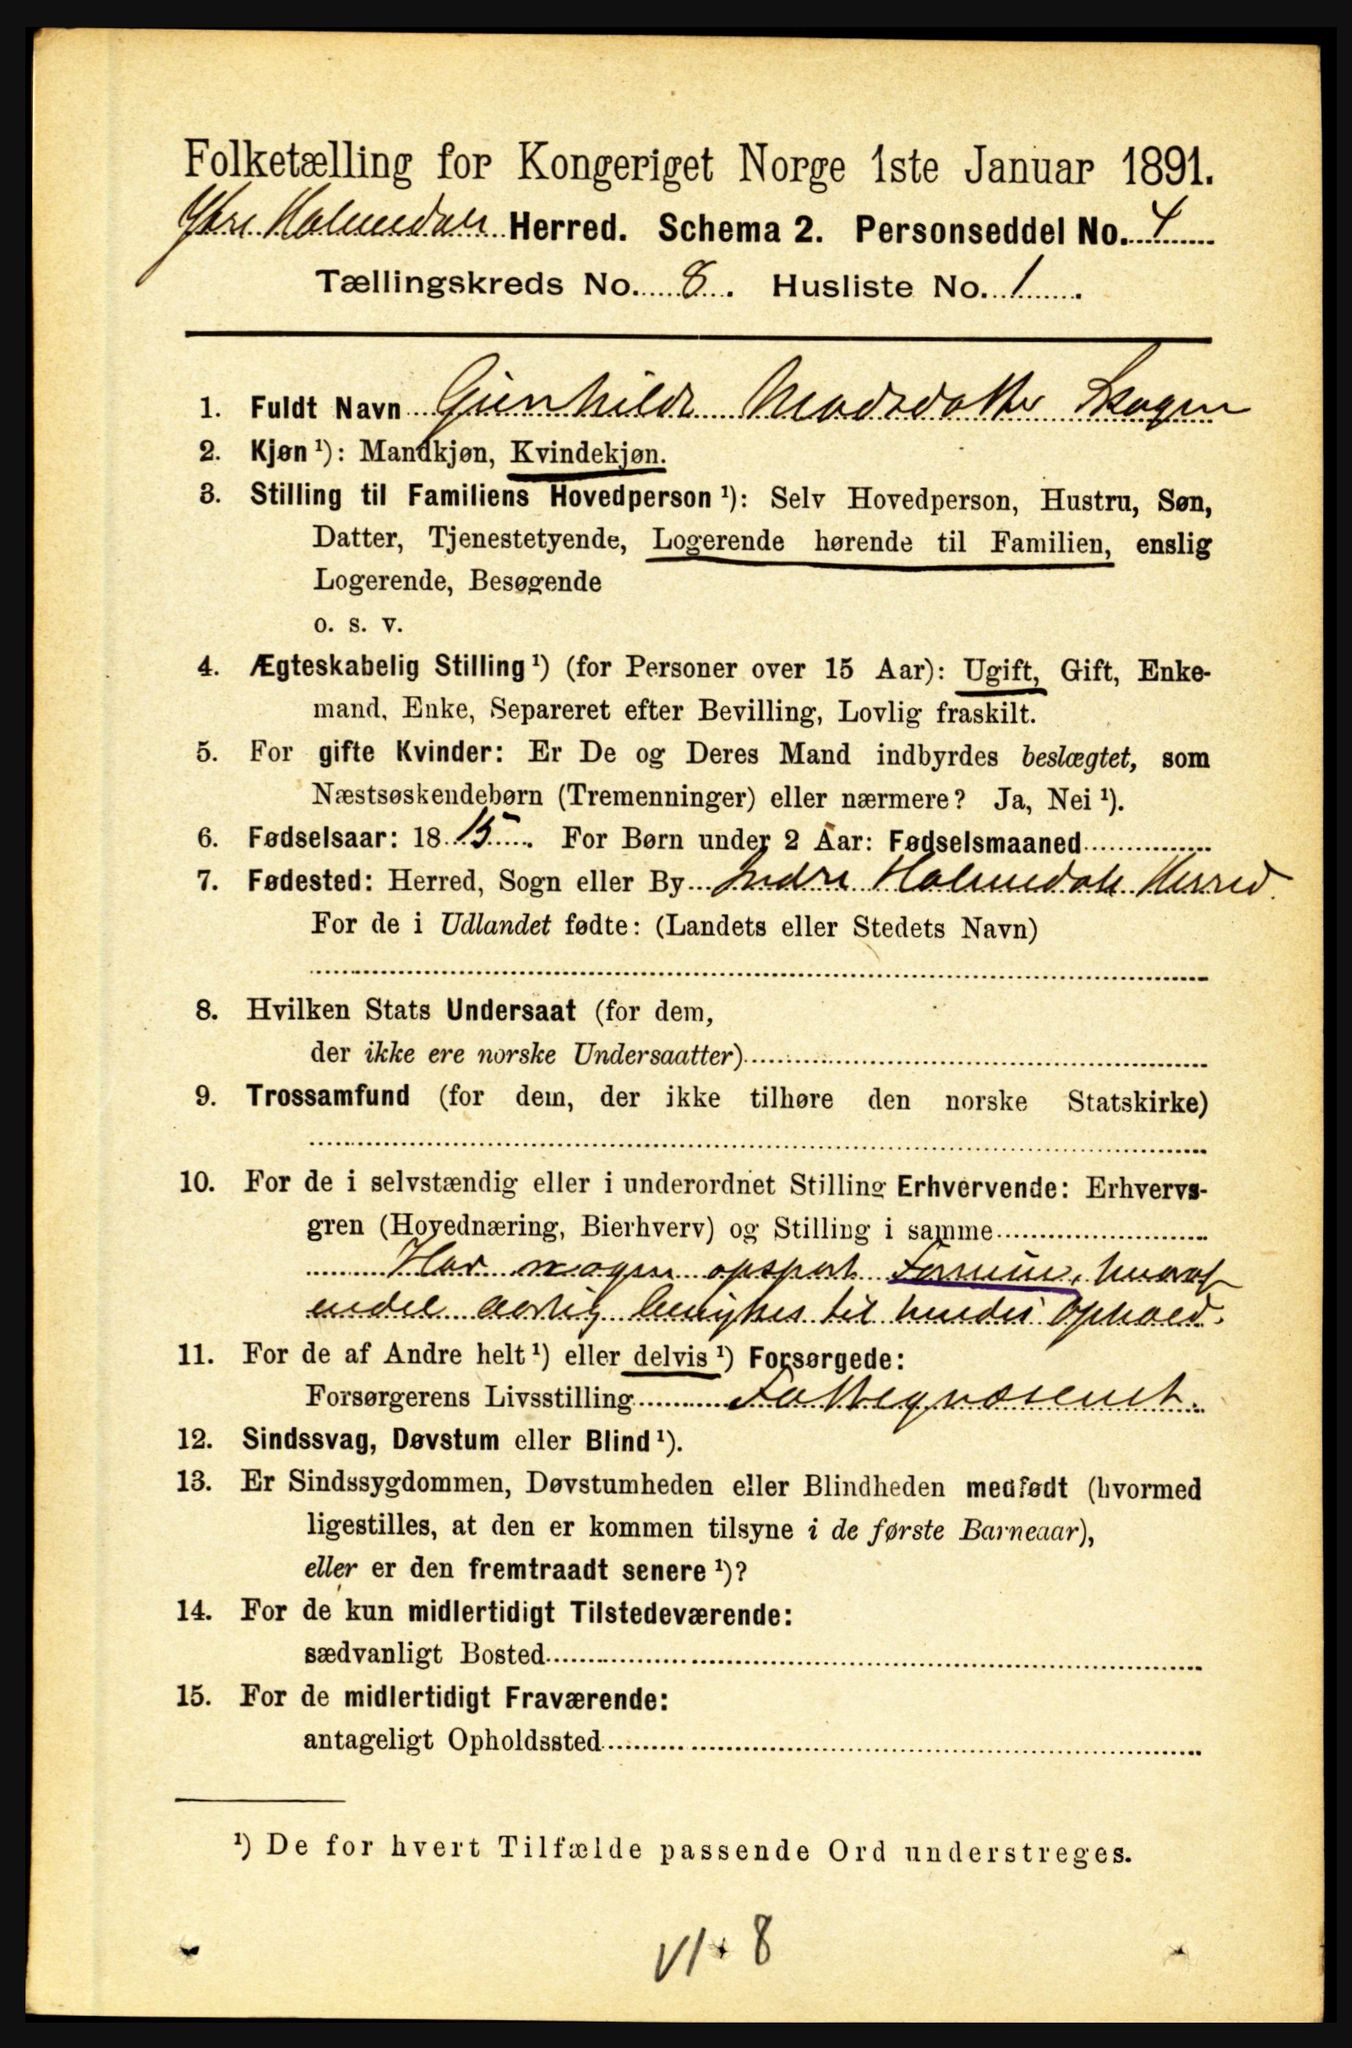 Folketælling for Kongeriget Norge 1ste Januar 1891.
Ytre Holmedals Herred. Schema 2. Personseddel No. 4
Tællingskreds No. 8. Husliste No. 1.
1. Fuldt Navn Gunhilde Madsdatter Skogen
2. Kjøn ¹): Mandkjøn, Kvindekjøn.
3. Stilling til Familiens Hovedperson ¹): Selv Hovedperson, Hustru, Søn,
Datter, Tjenestetyende, Logerende hørende til Familien, enslig
Logerende, Besøgende
o. s. v.
4. Ægteskabelig Stilling ¹) (for Personer over 15 Aar): Ugift, Gift, Enke-
mand, Enke, Separeret efter Bevilling, Lovlig fraskilt.
5. For gifte Kvinder: Er De og Deres Mand indbyrdes beslægtet, som
Næstsøskendebørn (Tremenninger) eller nærmere? Ja, Nei ¹).
6. Fødselsaar: 1815. For Børn under 2 Aar: Fødselsmaaned
7. Fødested: Herred, Sogn eller By Indre Holmedals Herred.
For de i Udlandet fødte: (Landets eller Stedets Navn)
8. Hvilken Stats Undersaat (for dem,
der ikke ere norske Undersaatter)
9. Trossamfund (for dem, der ikke tilhøre den norske Statskirke)
10. For de i selvstændig eller i underordnet Stilling Erhvervende: Erhvervs-
gren (Hovednæring, Bierhverv) og Stilling i samme
Har nogen opspart Formue, hvoraf
endel aarlig benyttes til hendes Ophold.
11. For de af Andre helt ¹) eller delvis ¹) Forsørgede:
Forsørgerens Livsstilling Fattigvæsenet.
12. Sindssvag, Døvstum eller Blind ¹).
13. Er Sindssygdommen, Døvstumheden eller Blindheden medfødt (hvormed
ligestilles, at den er kommen tilsyne i de første Barneaar),
eller er den fremtraadt senere ¹)?
14. For de kun midlertidigt Tilstedeværende:
sædvanligt Bosted
15. For de midlertidigt Fraværende:
antageligt Opholdssted
¹) De for hvert Tilfælde passende Ord understreges.
VI 8